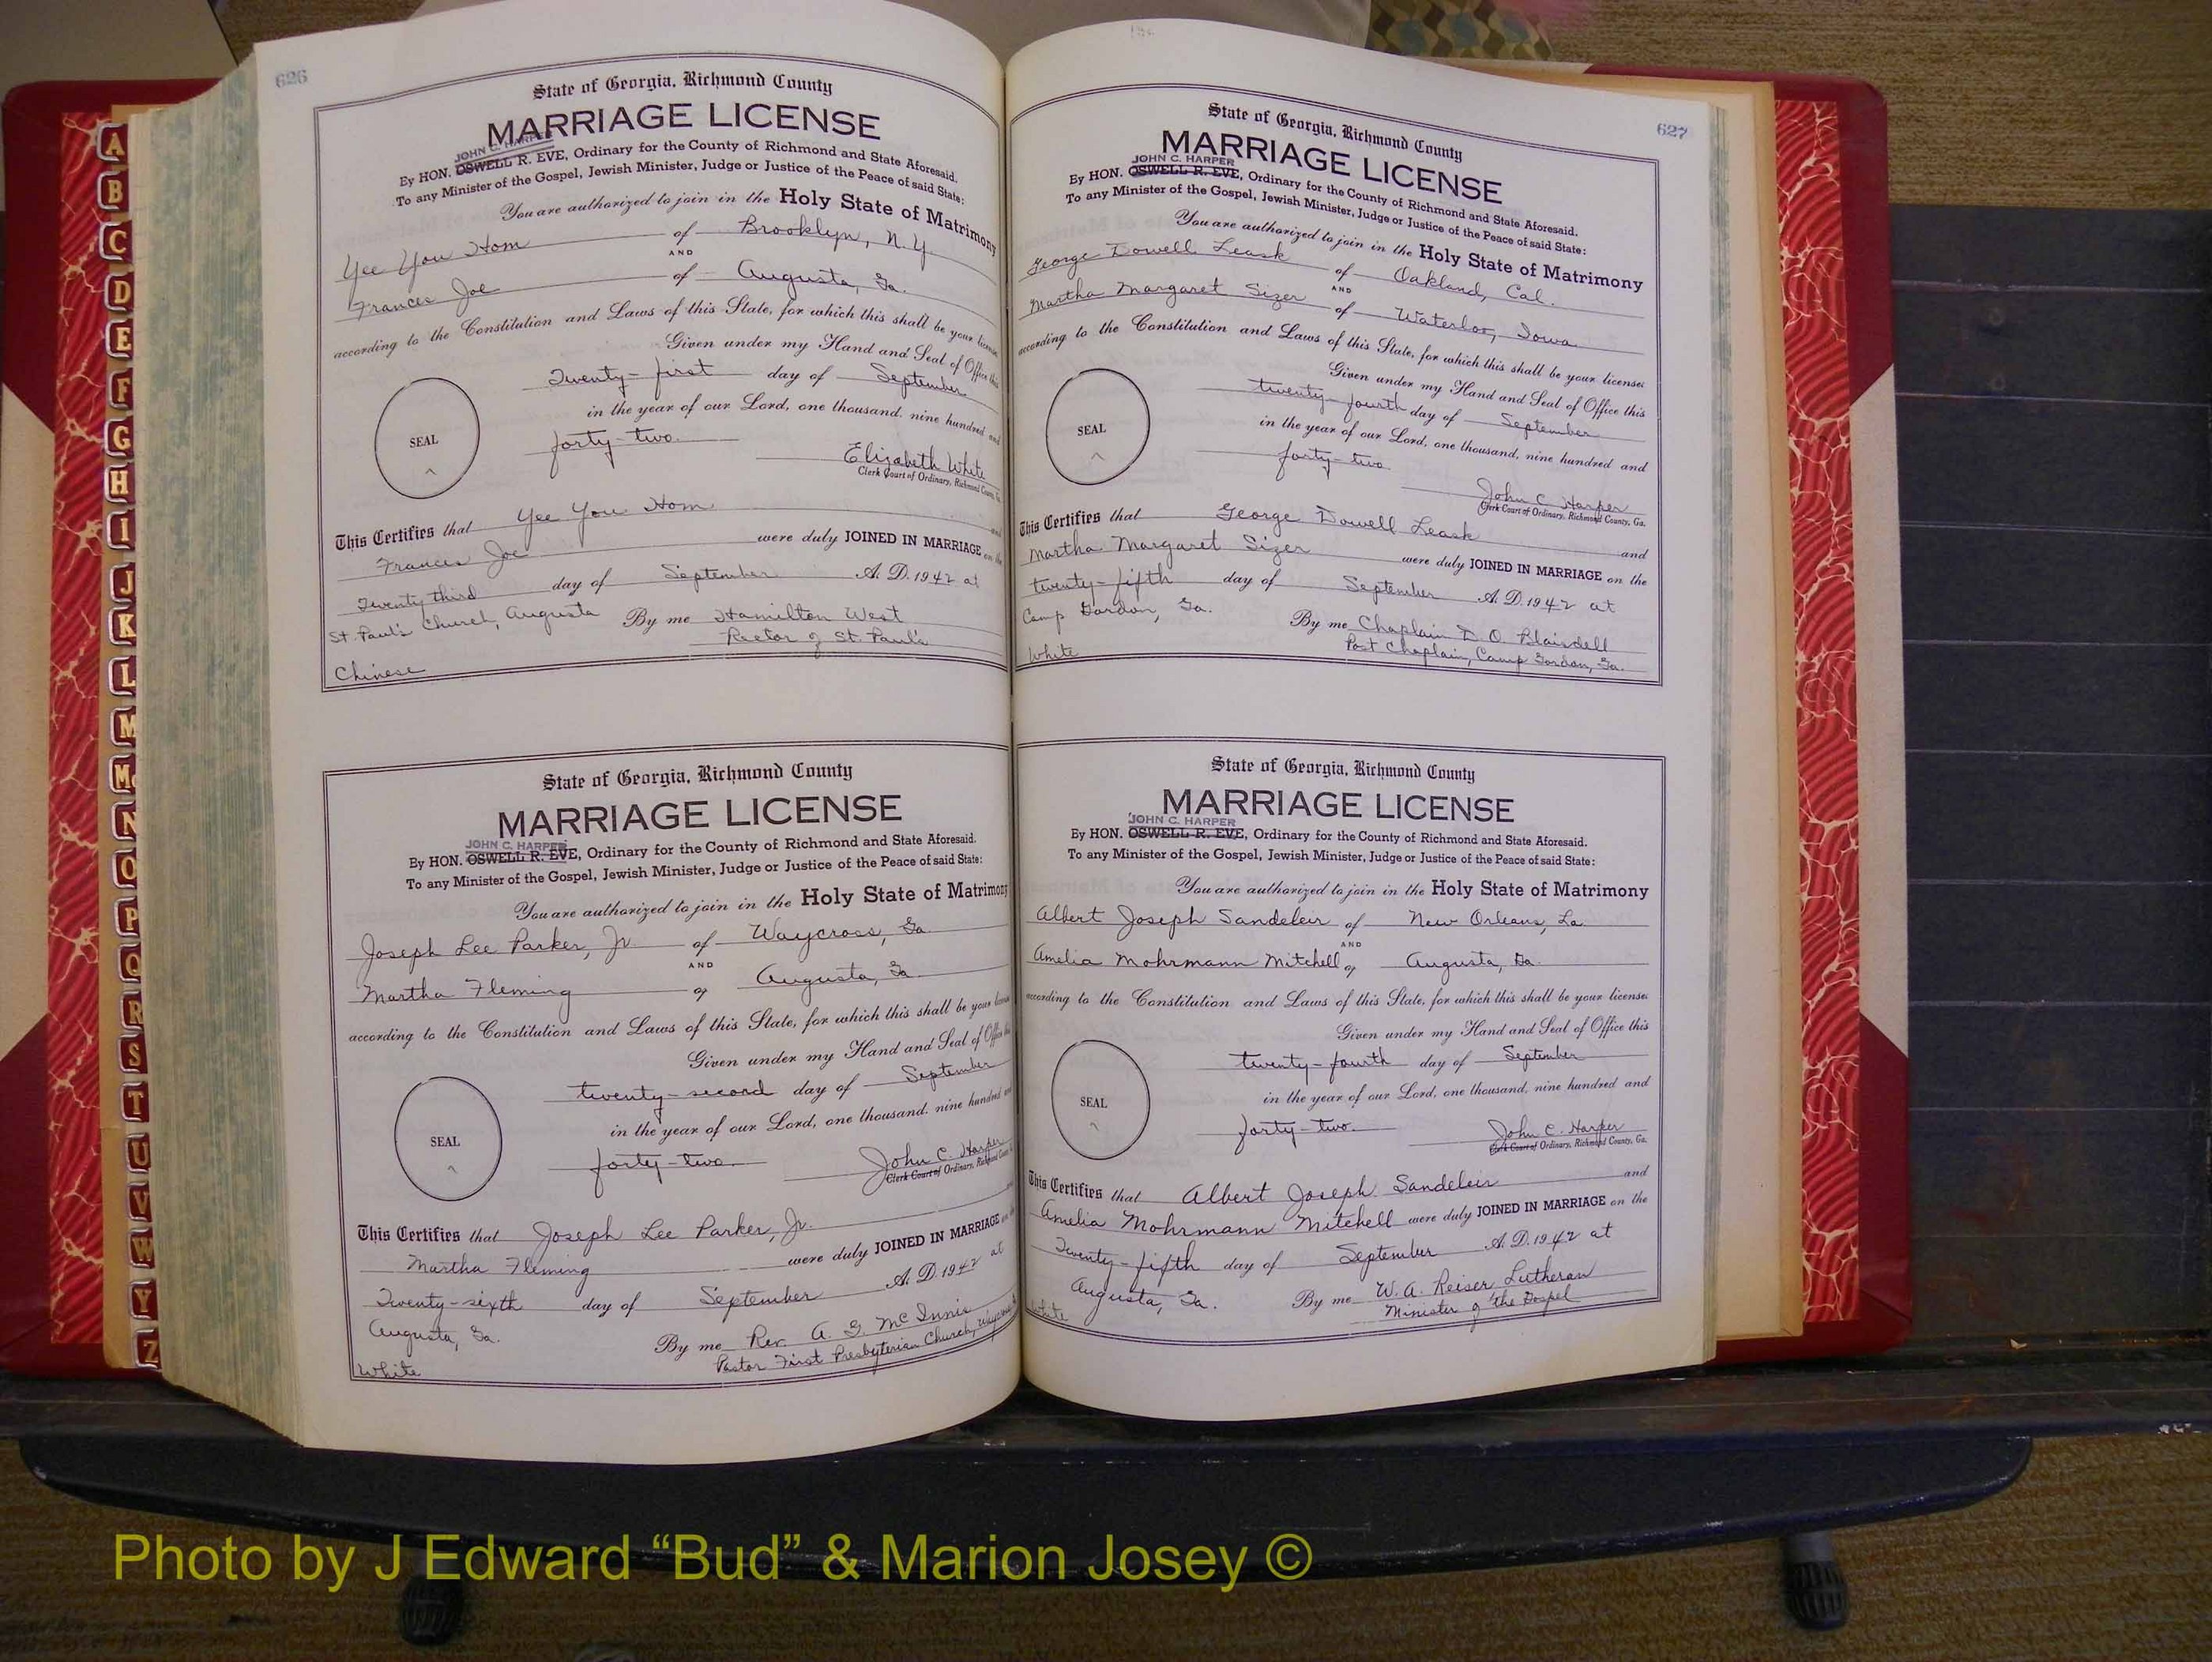 626
State of Georgia, Richmond County
MARRIAGE LICENSE
JOHN C. HARPER
By HON. OSWELL R. EVE, Ordinary for the County of Richmond and State Aforesaid.
To any Minister of the Gospel, Jewish Minister, Judge or Justice of the Peace of said State:
You are authorized to join in the Holy State of Matrimony
Yee You Hom of Brooklyn, N.Y.
AND
Frances Joe of Augusta, Ga.
according to the Constitution and Laws of this State, for which this shall be your license
Given under my Hand and Seal of Office this
Twenty-first day of September
in the year of our Lord, one thousand, nine hundred and
SEAL
forty-two.
Elizabeth White
Clerk Court of Ordinary, Richmond County, Ga.
This Certifies that Yee You Hom and
Frances Joe were duly JOINED IN MARRIAGE on the
Twenty third day of September A. D. 1942 at
St. Paul's Church, Augusta By me Hamilton West
Rector of St. Paul's
Chinese
State of Georgia, Richmond County
MARRIAGE LICENSE
JOHN C. HARPER
By HON. OSWELL R. EVE, Ordinary for the County of Richmond and State Aforesaid.
To any Minister of the Gospel, Jewish Minister, Judge or Justice of the Peace of said State:
You are authorized to join in the Holy State of Matrimony
Joseph Lee Parker, Jr of Waycross, Ga.
AND
Martha Fleming of Augusta, Ga.
according to the Constitution and Laws of this State, for which this shall be your license
Given under my Hand and Seal of Office this
twenty-second day of September
in the year of our Lord, one thousand, nine hundred and
SEAL
forty-two.
John C. Harper
Clerk Court of Ordinary, Richmond County
This Certifies that Joseph Lee Parker, Jr.
Martha Fleming were duly JOINED IN MARRIAGE on the
Twenty-sixth day of September A. D. 1942 at
Augusta, Ga. By me Rev. A. G. McInnis
Pastor First Presbyterian Church, Waycross
White
627
State of Georgia, Richmond County
MARRIAGE LICENSE
JOHN C. HARPER
By HON. OSWELL R. EVE, Ordinary for the County of Richmond and State Aforesaid.
To any Minister of the Gospel, Jewish Minister, Judge or Justice of the Peace of said State:
You are authorized to join in the Holy State of Matrimony
George Dowell Leask of Oakland, Cal.
AND
Martha Margaret Sizer of Waterloo, Iowa
according to the Constitution and Laws of this State, for which this shall be your license:
Given under my Hand and Seal of Office this
twenty-fourth day of September
in the year of our Lord, one thousand, nine hundred and
SEAL
forty-two
John C. Harper
Clerk Court of Ordinary, Richmond County, Ga.
This Certifies that George Dowell Leask and
Martha Margaret Sizer were duly JOINED IN MARRIAGE on the
twenty-fifth day of September A. D. 1942 at
Camp Gordon, Ga. By me Chaplain D. O. Blaisdell
Post Chaplain, Camp Gordon, Ga.
White
State of Georgia, Richmond County
MARRIAGE LICENSE
JOHN C. HARPER
By HON. OSWELL R. EVE, Ordinary for the County of Richmond and State Aforesaid.
To any Minister of the Gospel, Jewish Minister, Judge or Justice of the Peace of said State:
You are authorized to join in the Holy State of Matrimony
Albert Joseph Sandeleir of New Orleans, La.
AND
Amelia Mohrmann Mitchell of Augusta, Ga.
according to the Constitution and Laws of this State, for which this shall be your license:
Given under my Hand and Seal of Office this
twenty-fourth day of September
in the year of our Lord, one thousand, nine hundred and
SEAL
forty-two.
John C. Harper
Clerk Court of Ordinary, Richmond County, Ga.
This Certifies that Albert Joseph Sandeleir and
Amelia Mohrmann Mitchell were duly JOINED IN MARRIAGE on the
Twenty-fifth day of September A. D. 1942 at
Augusta, Ga. By me W. A. Reiser, Lutheran
Minister of the Gospel
White
A
B
C
D
E
F
G
H
I
J
K
L
M
Mc
N
O
P
Q
R
S
T
U
V
W
Y
Z
Photo by J Edward “Bud” & Marion Josey ©